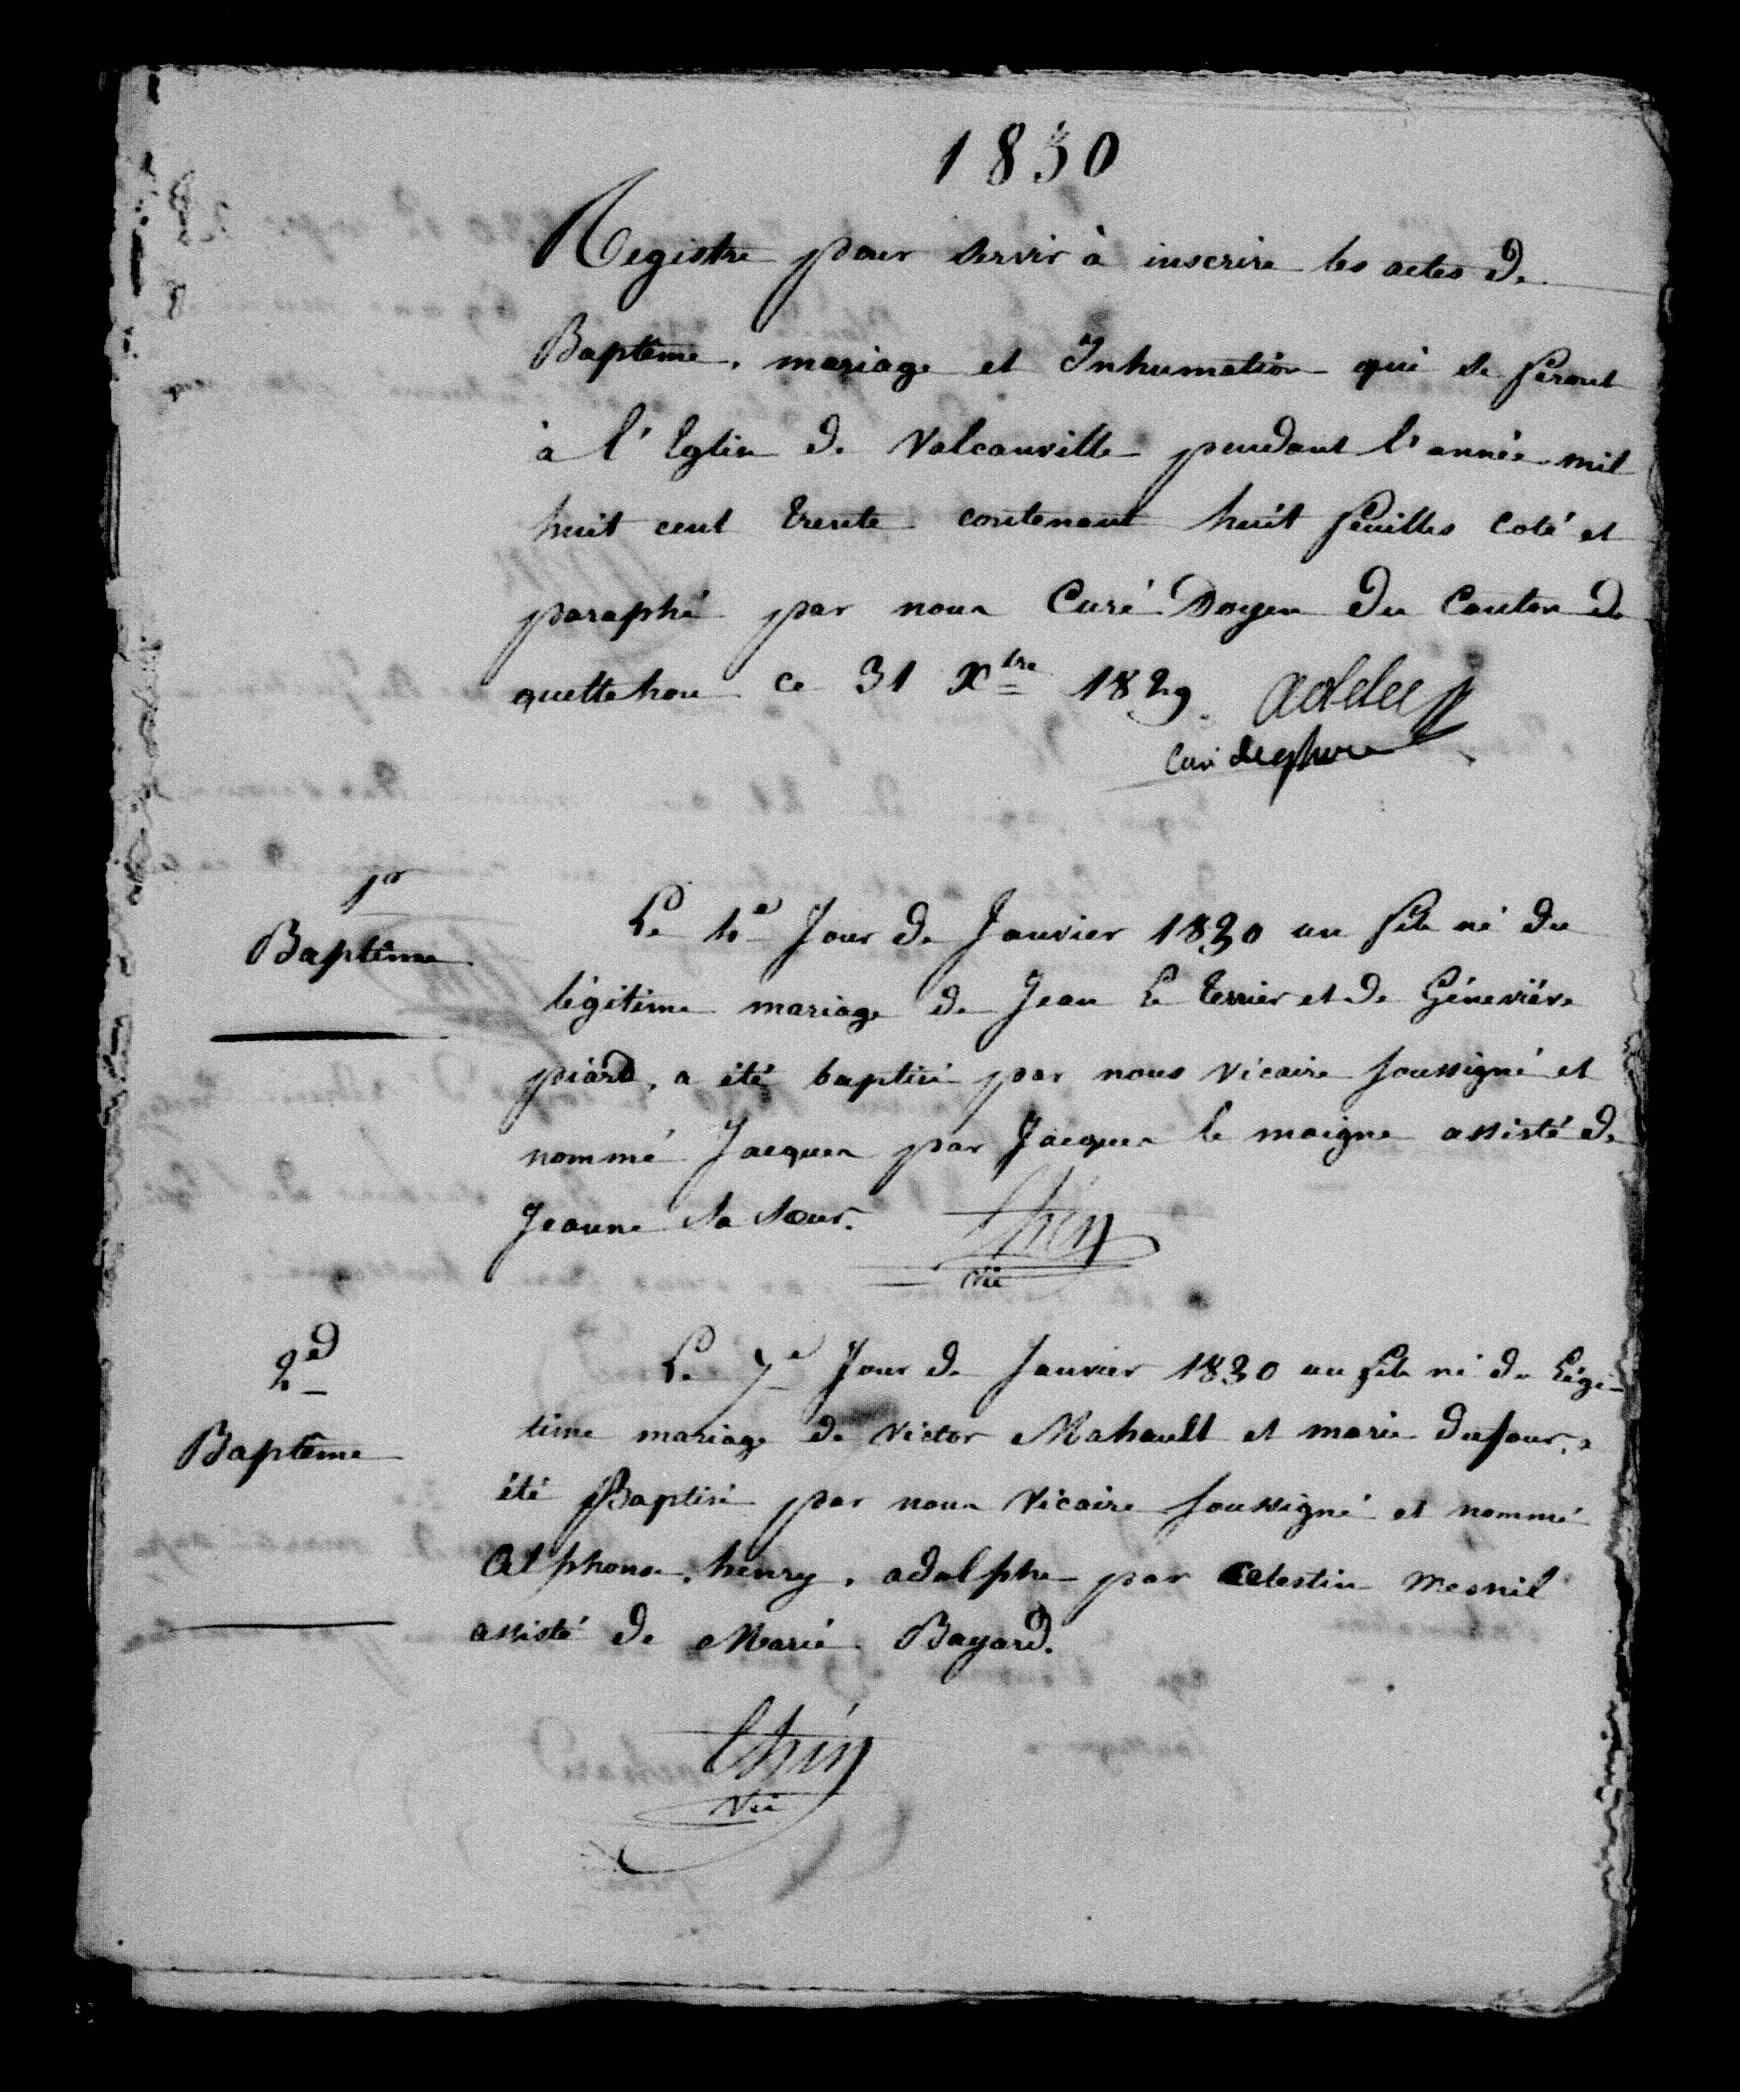 1830
Registre pour servir à inscrire les actes de
Baptême, mariage et Inhumation qui se feront
à l'Eglise de Valcanville pendant l'année mil
huit cent trente contenant huit feuilles coté et
paraphé par nous Curé Doyen du Canton de
quettehou ce 31 Xbre 1829.
Curé
1er
Baptême
Le Jour de Janvier 1830 un fils né du
légitime mariage de Jean Le Terrier et de Géneviéve
piard, a été baptisé par nous vicaire soussigné et
nommé Jacques par Jacques le moigne assisté de
Jeanne sa sœur.
Vic
2d
Baptême
Le 7e Jour de Janvier 1830 un fils né du Légi-
time mariage de Victor Mahault et marie dufour, a
été Baptisé par nous Vicaire soussigné et nommé
Alphonse, henry, adolphe par Celestin Mesnil
assisté de Marie Bayard.
Vic